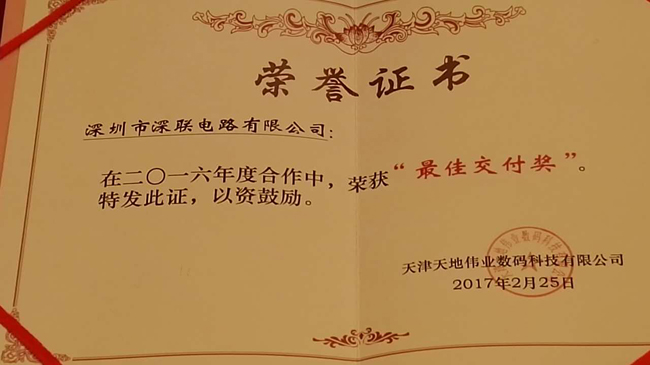 荣誉证书
深圳市深联电路有限公司：
在二〇一六年度合作中，荣获“最佳交付奖”。
特发此证，以资鼓励。
天津天地伟业数码科技有限公司
2017年2月25日